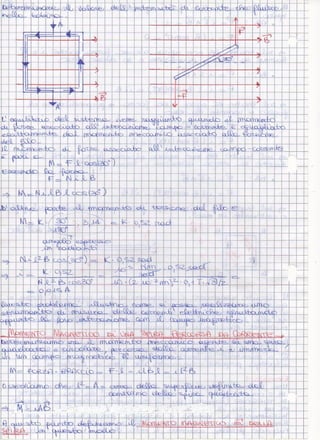 Determiniamo il valore dell'intensità di corrente che fluisce
nella bobina.
A
B
A
F
B
30°
-F
L'equilibrio del sistema viene raggiunto quando il momento
di forze associato all'interazione campo-corrente è eguagliato
esattamente dal momento meccanico associato alla torsione
del filo.
Il momento di forze associato all'interazione campo-corrente
è pari a
M = F·l cos(30°)
Essendo la forza
F = N i l B
⇒ M = N i l B l cos(30°)
D'altra parte il momento di torsione del filo è
M = K · 30°/180° · 3,14 = K 0,52 rad
angolo espresso
in radianti
⇒ N i l² B cos(30°) = K · 0,52 rad
⇒ i = K 0,52 / N l² B cos30° =
= 0,015 A
Questo problema illustra come si possa realizzare uno
strumento di misura delle correnti elettriche sfruttando
appunto la loro interazione con il campo magnetico.
MOMENTO MAGNETICO DI UNA SPIRA PERCORSA DA CORRENTE
Determiniamo ora il momento meccanico agente su una spira
quadrata percorsa dalla corrente i e immersa
in un campo magnetico B uniforme.
M = FORZA · BRACCIO = F·l = i l B l = i l² B
Osserviamo che l² = A = area della superficie definita dal
contorno della spira quadrata.
⇒ M = i A B
A questo punto definiamo il MOMENTO MAGNETICO DELLA
SPIRA in questo modo: